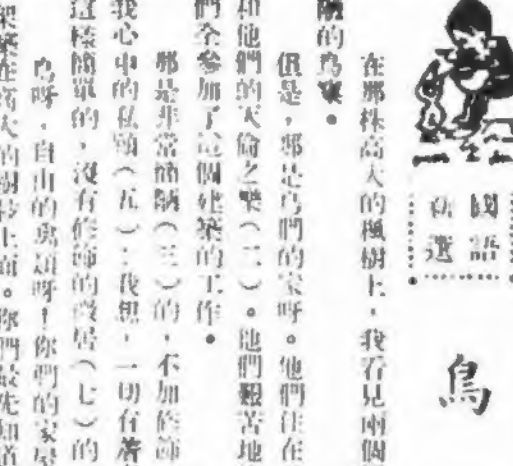 國語
選
鳥
在那株高大的楓樹上，我看見兩個
陋的鳥窠。
但是，那是鳥們的家呀。他們住在
和他們的天倫之樂（二）。他們艱苦地
們全參加了這個建築的工作。
那是非常簡陋（三）的，不加修飾
我心中的私願（五）：我想，一切有著
這樣簡單的，沒有修飾的居（七）的
鳥呀，自由的鳥類呀！你們的家屋
架築在高大的樹枝上面。你們最先知道